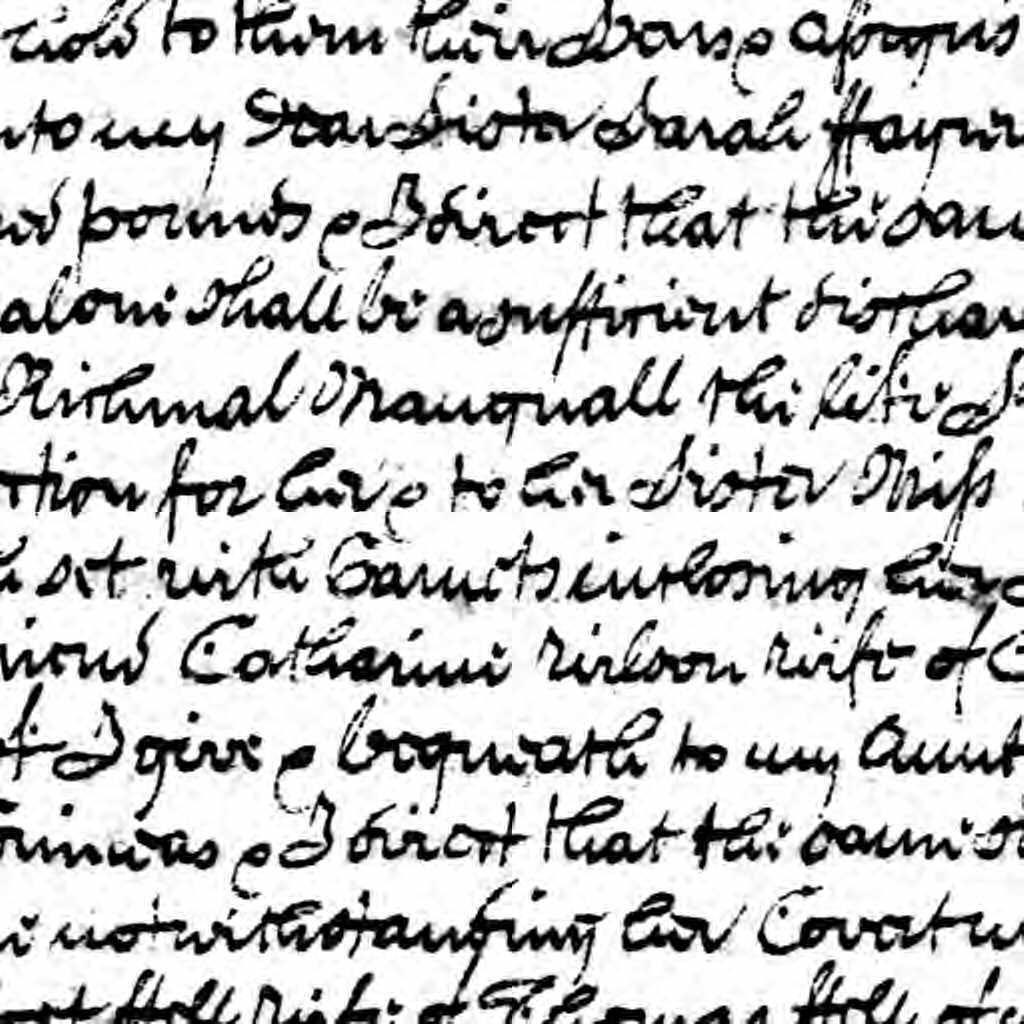 to them their Exors & assigns
unto my Dear Sister Sarah Hayne
pounds & I direct that the same
alone shall be a sufficient dischar
Richmal Mangnall the like S
ction for her & to her Sister Miss
set with Garnets inclosing her
riend Catharine Wilson Wife of
I give & bequeath to my Aunt
Guineas & I direct that the same s
notwithstanding her Covertu
Holl Wife of Thomas Holl of